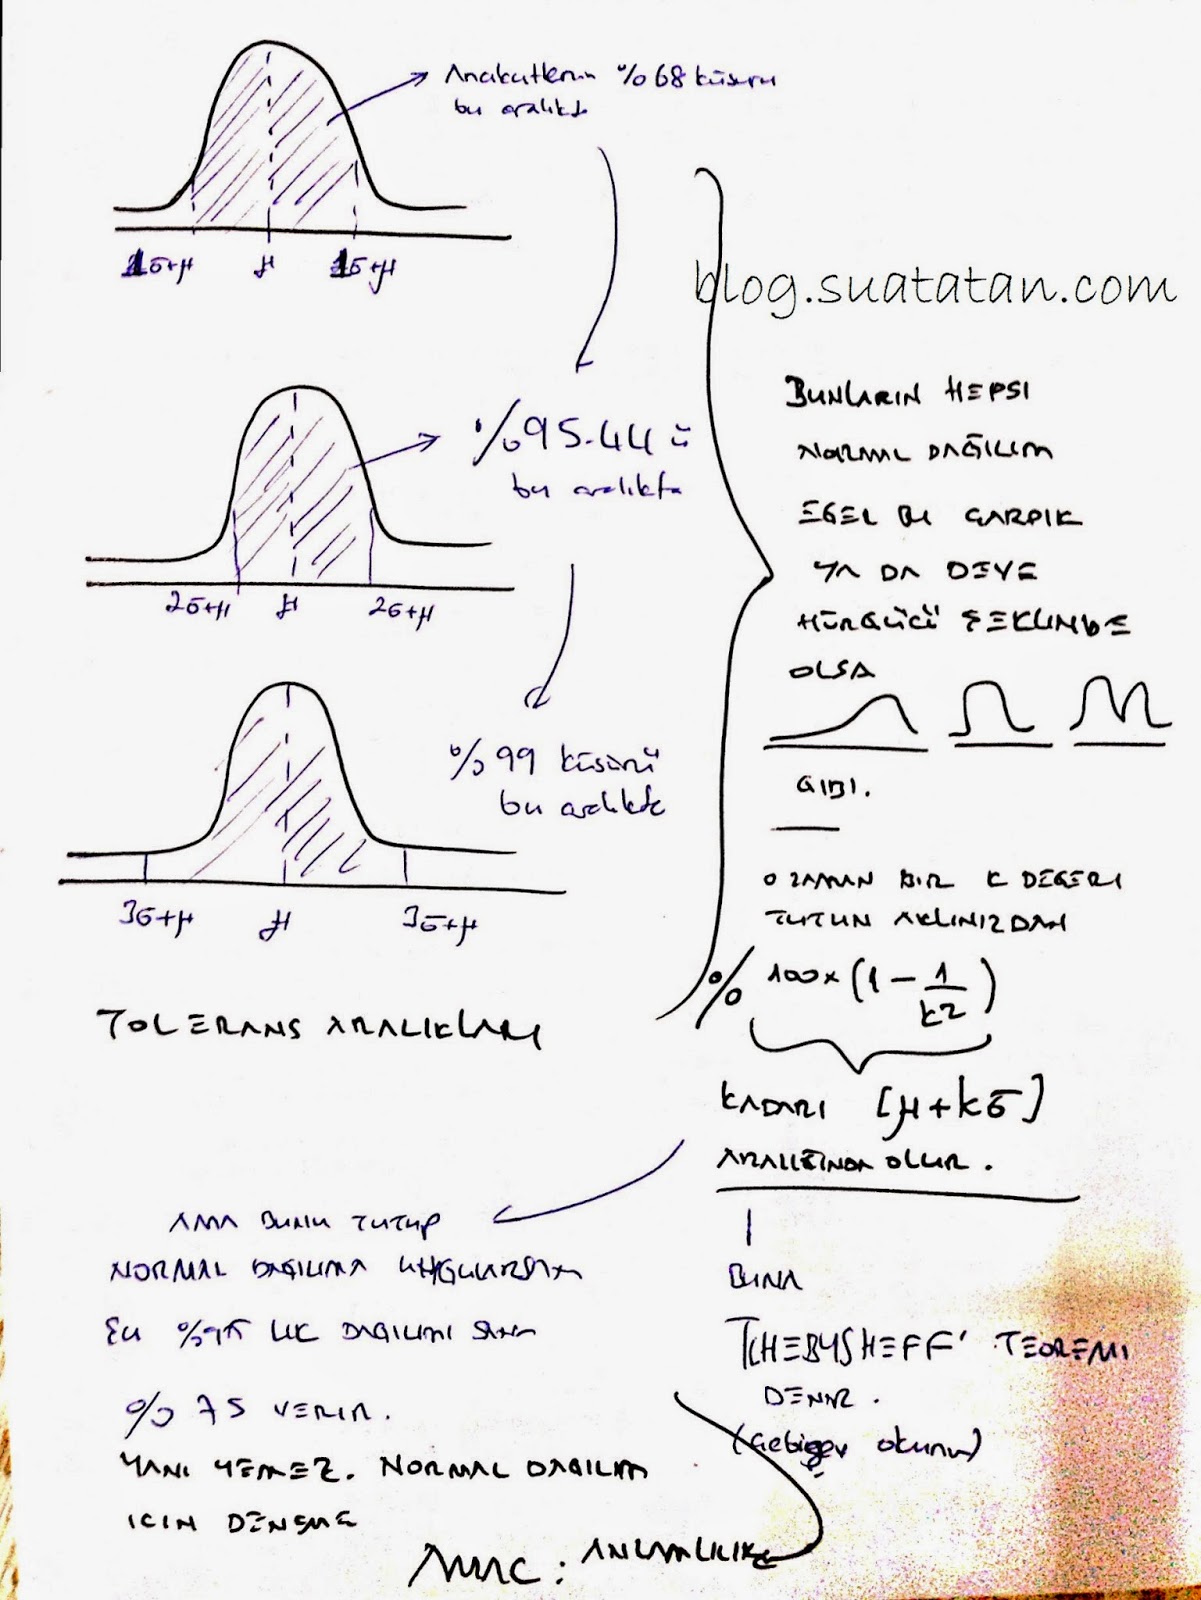 Anakütlenin %68 küsuru
bu aralıkta
1σ+μ μ 1σ+μ
blog.suatatan.com
%95.44 ü
bu aralıkta
2σ+μ μ 2σ+μ
%99 küsürü
bu aralıkta
3σ+μ μ 3σ+μ
TOLERANS ARALIKLARI
BUNLARIN HEPSI
NORMAL DAĞILIM
EGEL BI ÇARPIK
YA DA DEVE
HÜRGÜCÜ ŞEKLINDE
OLSA
GIBI.
O ZAMAN BIR K DEGERI
TUTUN AKLINIZDAN
% 100x(1 - 1/k2)
KADARI [μ+kσ]
ARALIĞINDA OLUR.
BUNA
TCHEBYSHEFF' TEOREMI
DENIR.
(Çebişev okunur)
AMA BUNU TUTUP
NORMAL DAĞILIMA UYGULARSAN
%95 LIK DAGILIMI SANA
%75 VERIR.
YANI YEMEZ. NORMAL DAGILIM
ICIN DENEME